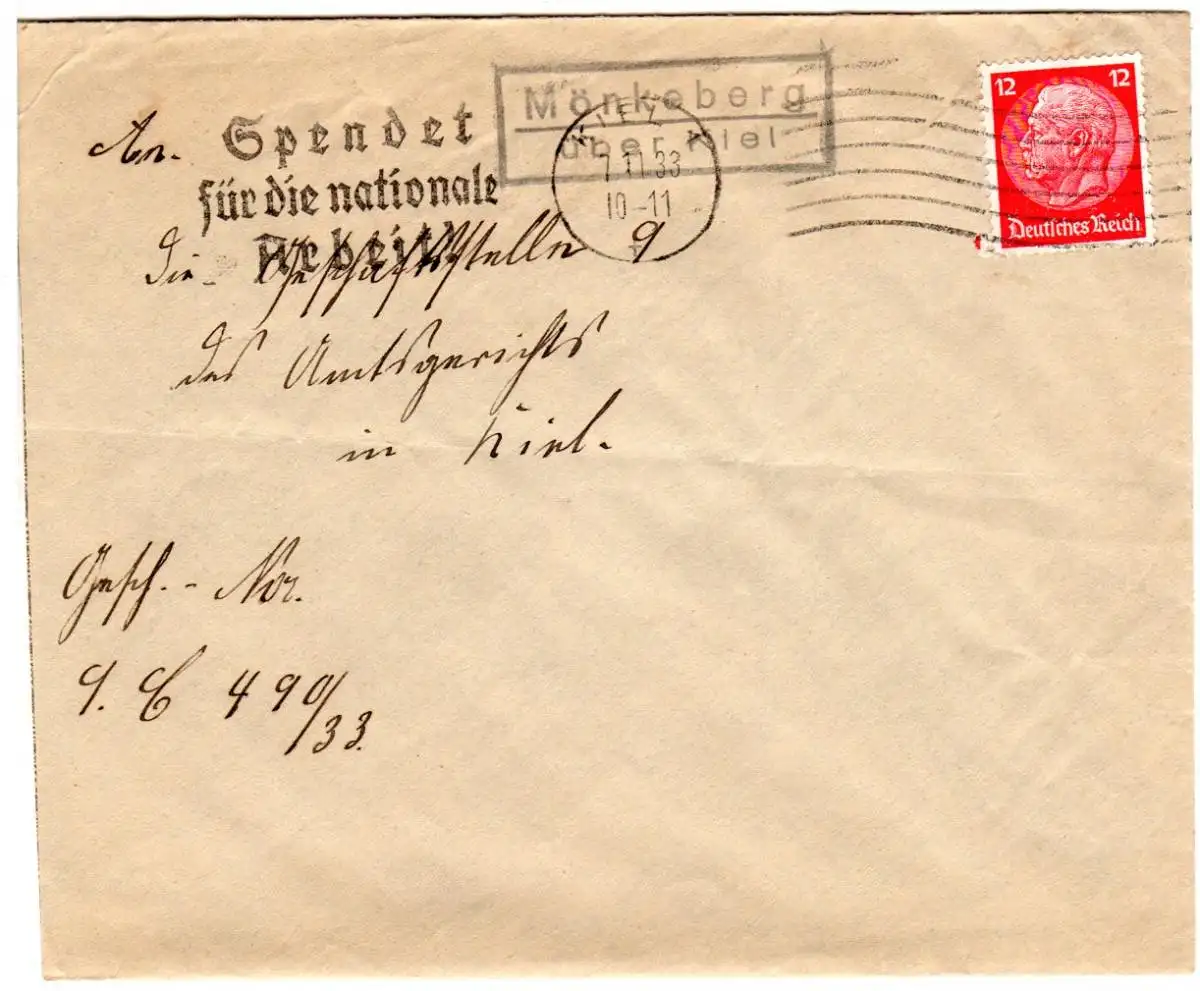 Mönkeberg
über Kiel
12 12
Deutsches Reich
KIEL
7.11.33
10-11
Spendet
für die nationale
Arbeit!
An
die Geschäftsstelle 9
des Amtsgerichts
in Kiel.
Gesch.-Nr.
9. C 490/33.